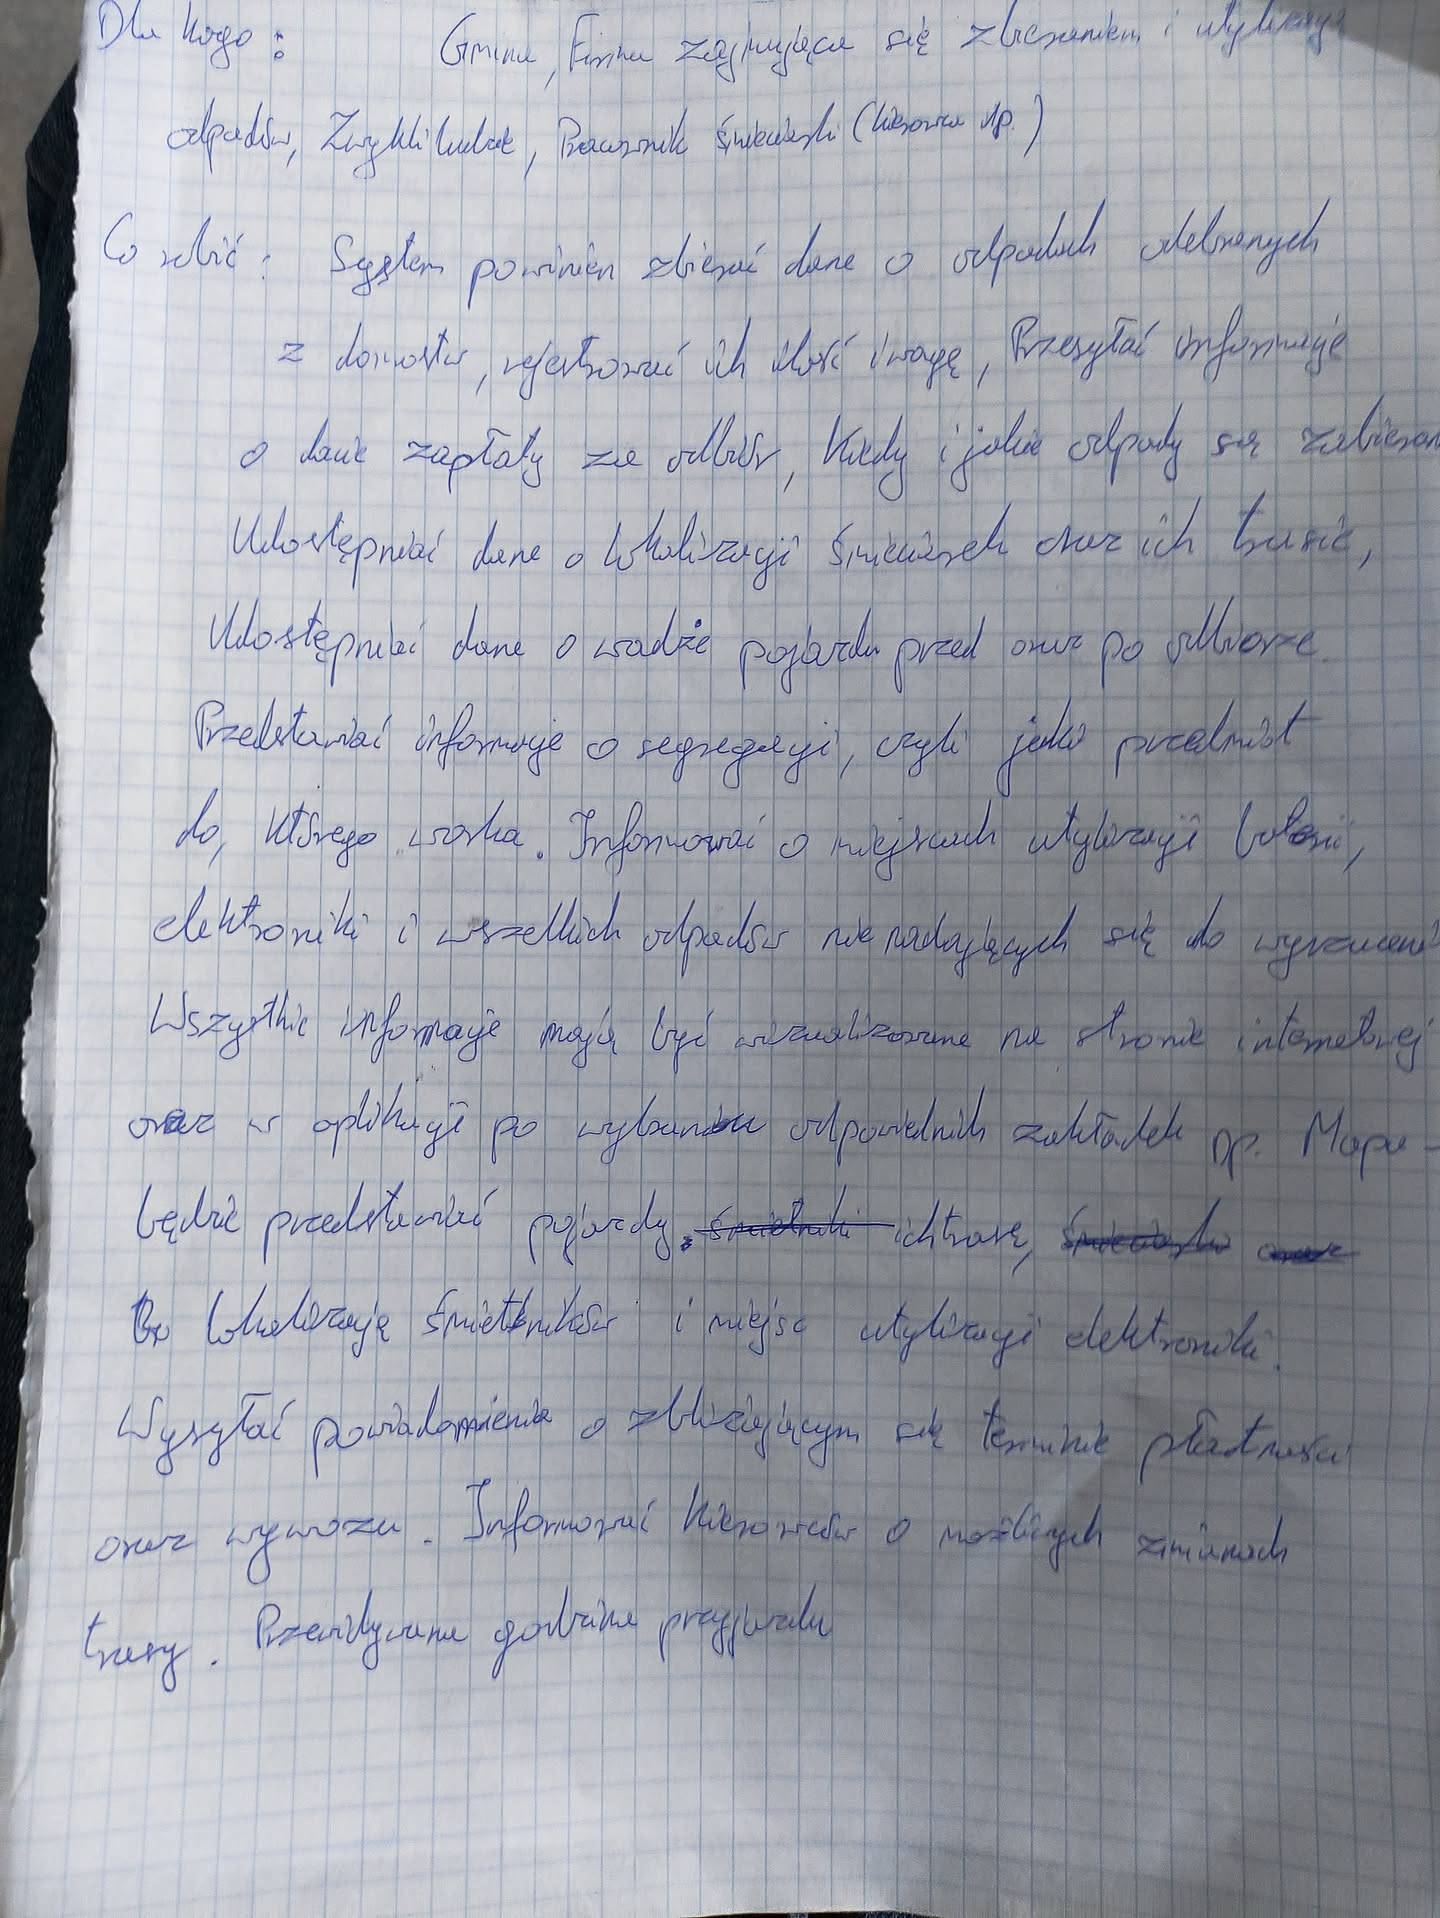 Dla kogo : Gmina, Firma zajmująca się zbieraniem i utylizacją
odpadów, Zwykli ludzie, Pracownik śmieciarki (kierowca np.)
Co robić : System powinien zbierać dane o odpadach odebranych
z domostw, rejestrować ich ilość i wagę, Przesyłać informacje
o dacie zapłaty za odbiór, Kiedy i jakie odpady są zabierane
Udostępniać dane o lokalizacji śmieciarek oraz ich trasie,
Udostępniać dane o wadze pojazdu przed oraz po odbiorze.
Przedstawiać informacje o segregacji, czyli jaki przedmiot
do, którego worka. Informować o miejscach utylizacji baterii,
elektroniki i wszelkich odpadów nie nadających się do wyrzucenia
Wszystkie informacje mają być wizualizowane na stronie internetowej
oraz w aplikacji po wybraniu odpowiednich zakładek np. Mapa -
będzie przedstawiać pojazdy, śmietniki ich trasę,
lokalizację śmietników i miejsc utylizacji elektroniki.
Wysyłać powiadomienia o zbliżającym się terminie płatności
oraz wywozu. Informować kierowców o możliwych zmianach
trasy. Przewidywana godzina przyjazdu